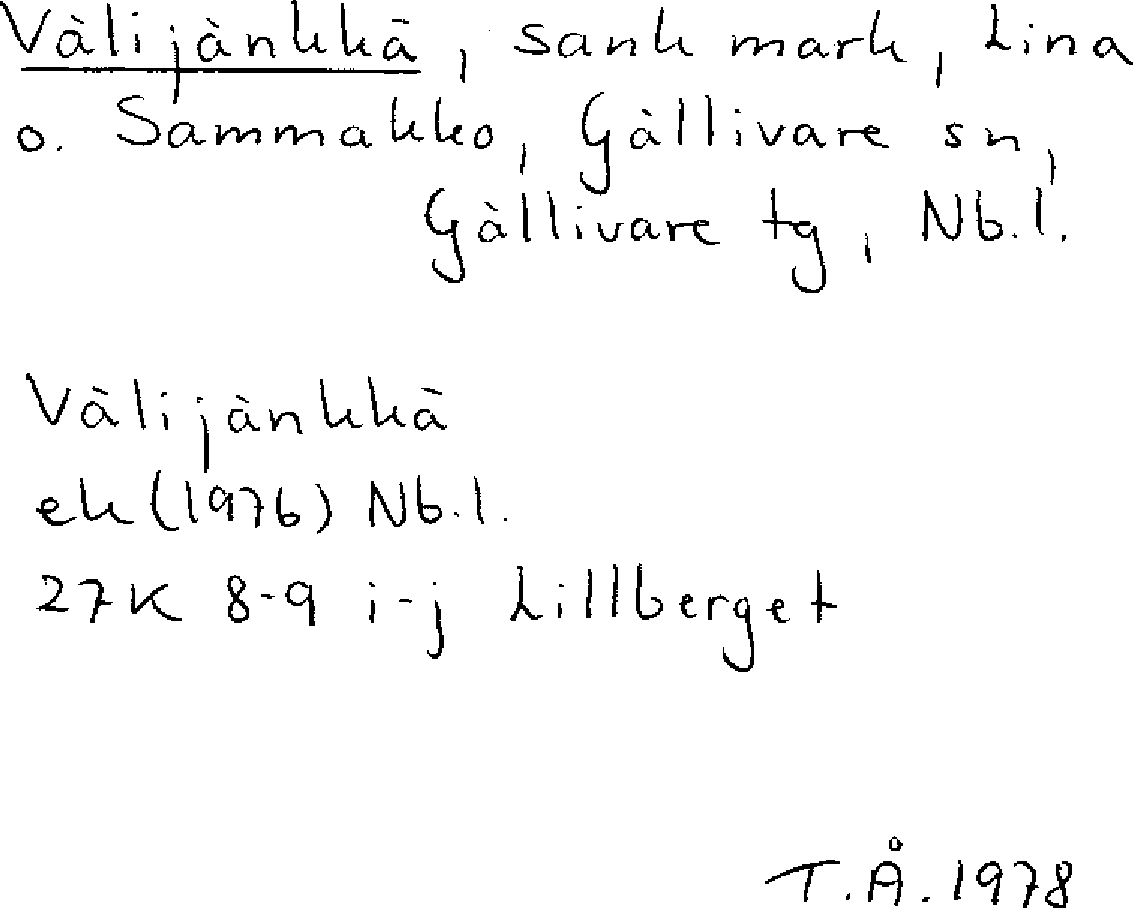 Välijänkkä, sank mark, Lina
o. Sammakko, Gällivare sn,
Gällivare tg, Nb.l.
Välijänkkä
ek (1976) Nb.l.
27K 8-9 i-j Lillberget
T.Å. 1978